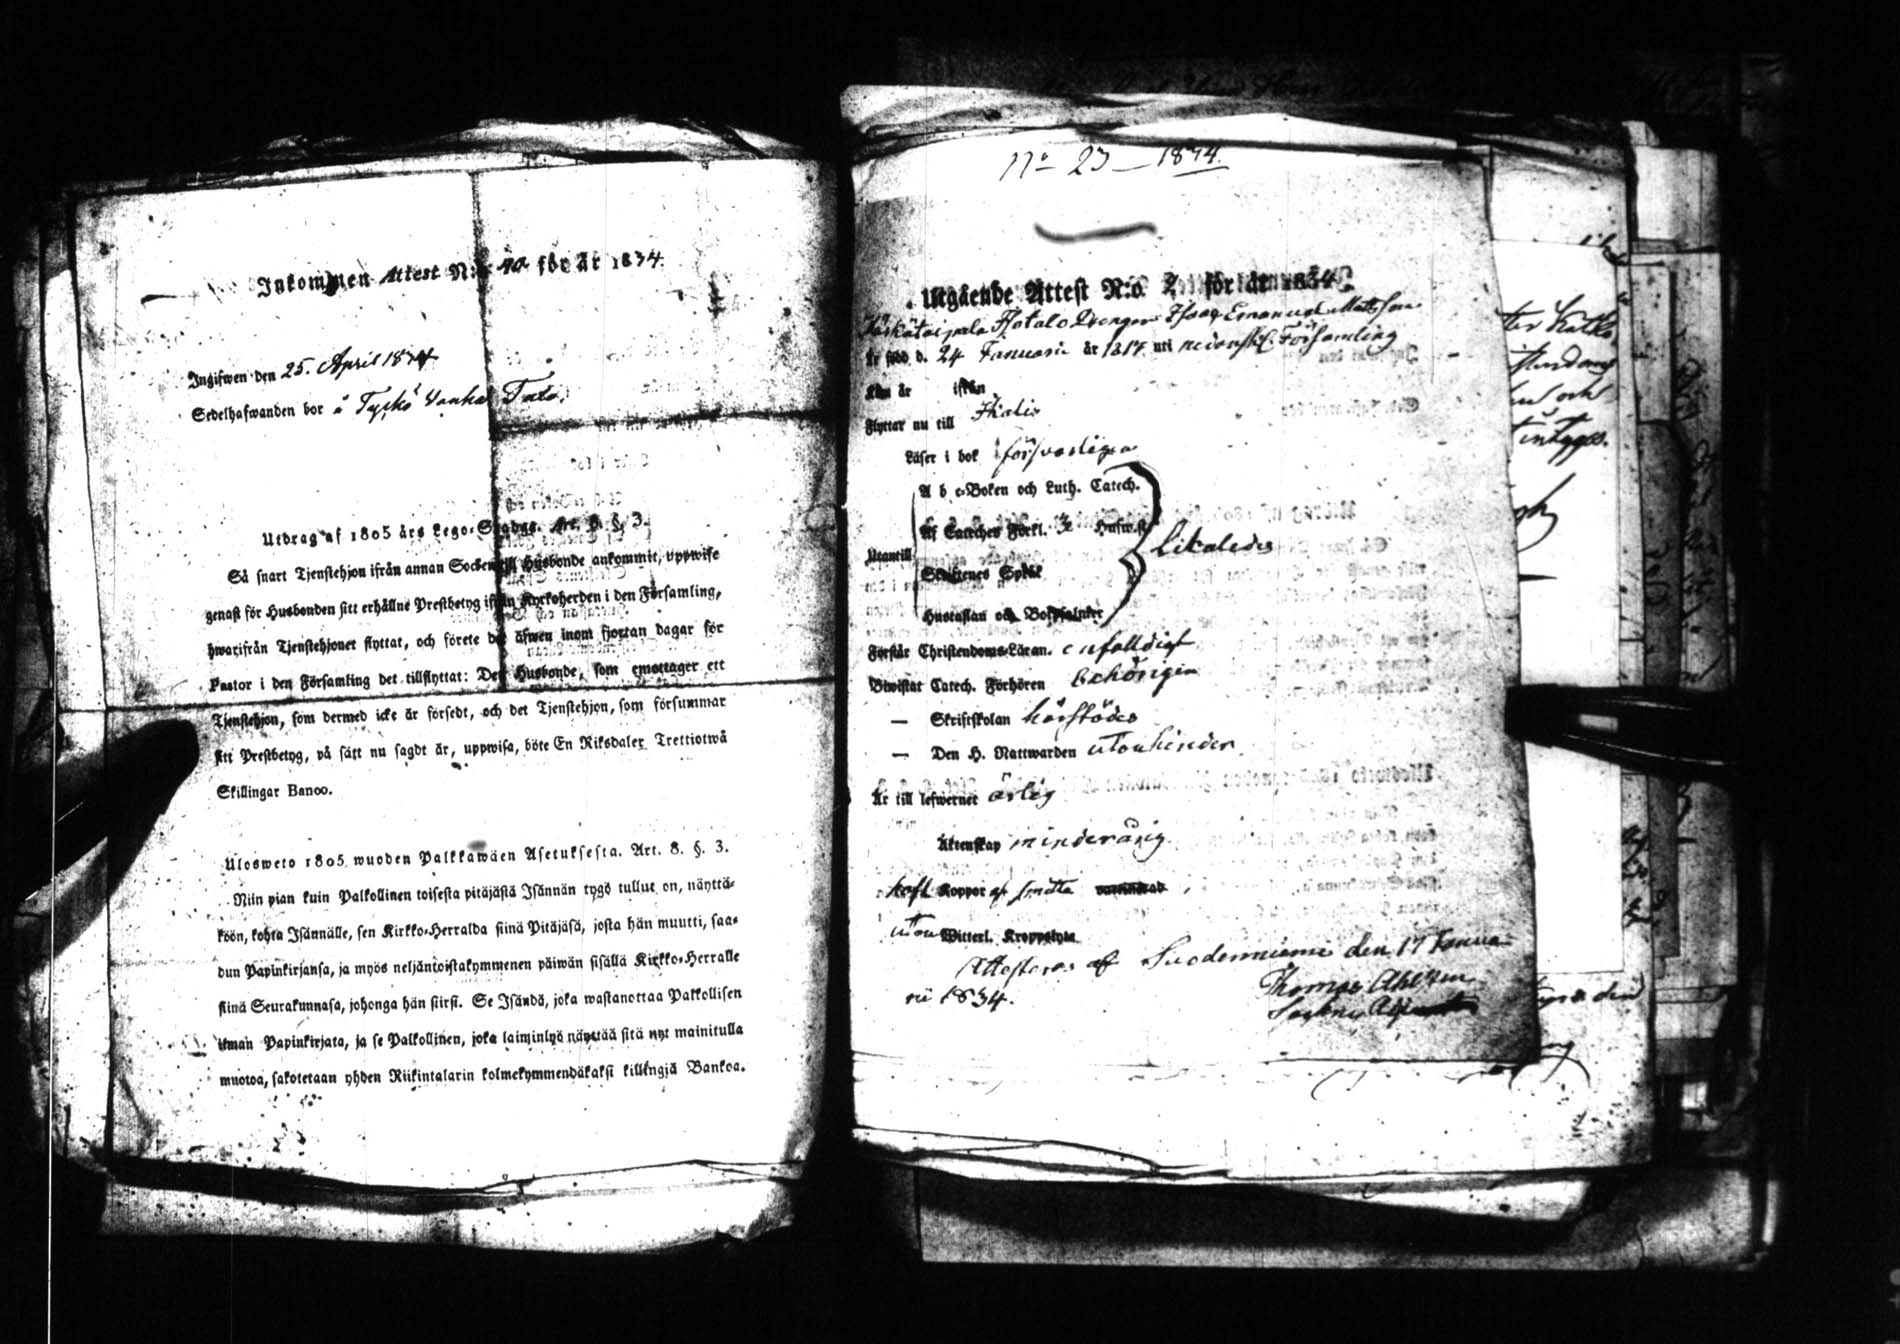 Inkommen Attest N:o 40 för år 1834.
Ingifwen den 25. April 1834
Sedelhafwanden bor å Tyrkö Vanha Talo.
Utdrag af 1805 års Lego-Stadga. Art. 8. §. 3.
Så snart Tjenstehjon ifrån annan Socken till Husbonde ankommit, uppwise
genast för Husbonden sitt erhållne Prestbetyg ifrån Kyrkoherden i den Församling,
hwarifrån Tjenstehjonet flyttat, och förete det äfwen inom fjortan dagar för
Pastor i den Församling det tillflyttat: Den Husbonde, som emottager ett
Tjenstehjon, som dermed icke är försedt, och det Tjenstehjon, som försummar
sitt Prestbetyg, på sätt nu sagdt är, uppwisa, böte En Riksdaler Trettiotwå
Skillingar Banco.
Ulosweto 1805 wuoden Palkkawäen Asetuksesta. Art. 8. §. 3.
Niin pian kuin Palkollinen toisesta pitäjästä Isännän tygö tullut on, näyttä-
köön, kohta Isännälle, sen Kirkko-Herralda siinä Pitäjäsä, josta hän muutti, saa-
dun Papinkirjansa, ja myös neljäntoistakymmenen päiwän sisällä Kirkko-Herralle
siinä Seurakunnasa, johonga hän siirsi. Se Isändä, joka wastanottaa Palkollisen
ilman Papinkirjata, ja se Palkollinen, joka laiminlyö näyttää sitä nyt mainitulla
muotoa, sakotetaan yhden Riikintalarin kolmekymmendäkaksi killingiä Bankoa.
No 23 1834.
Utgående Attest N:o 2 för år 1834
Drengen Isaac Emanuel Matsson
är född d. 24 Januarii år 1817 uti Församling
Kom år ifrån
Flyttar nu till Ikalis
Läser i bok försvarligen
A b c-Boken och Luth. Catech.
Af Catechet Förkl. Husw.st
Utantill
likaledes
Skriftenes Språk
Hustaflan och Botpsalmer
Förstår Christendoms-Läran. enfalldigt
Biwistat Catech. Förhören behörigen
— Skriftskolan härstädes
— Den H. Nattwarden utan hinder
Är till lefwernet ärlig
Äktenskap minderårig.
haft Koppor
utan Witterl. Kroppslyte
Attesteras af Suodenniemi den 17 Janua-
rii 1834.
Thomas